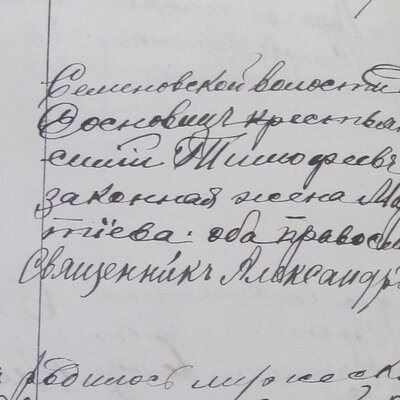 Семеновской волости
Сосновицъ крестьян
сний Тимофеевъ
законная жена Ма
тiева. оба правосл
Священникъ Александръ
родилось мужеск